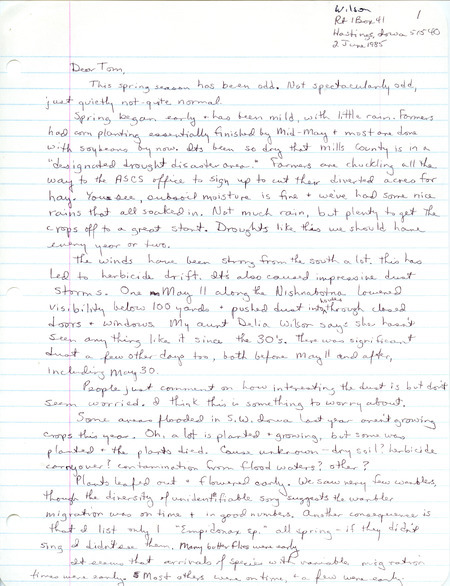 Wilson
Rt 1 Box 41
Hastings, Iowa 51540
2 June 1985
1
Dear Tom,
This spring season has been odd. Not spectacularly odd,
just quietly not-quite normal.
Spring began early + has been mild, with little rain. Farmers
had corn planting essentially finished by Mid-May + most are done
with soybeans by now. It's been so dry that Mills County is in a
"designated drought disaster area." Farmers are chuckling all the
way to the ASCS office to sign up to cut their diverted acres for
hay. You see, subsoil moisture is fine + we've had some nice
rains that all soaked in. Not much rain, but plenty to get the
crops off to a great start. Droughts like this we should have
every year or two.
The winds have been strong from the south a lot. This has
led to herbicide drift. It's also caused impressive dust
storms. One May 11 along the Nishnabotna lowered
visibility below 100 yards + pushed dust into houses through closed
doors + windows. My aunt Delia Wilson says she hasn't
seen any thing like it since the 30's. There was significant
dust a few other days too, both before May 11 and after,
including May 30.
People just comment on how interesting the dust is but don't
seem worried. I think this is something to worry about.
Some areas flooded in S.W. Iowa last year aren't growing
crops this year. Oh, a lot is planted + growing, but some was
planted + the plants died. Cause unknown - dry soil? herbicide
carryover? contamination from flood waters? other?
Plants leafed out + flowered early. We saw very few warblers,
though the diversity of unidentifiable song suggests the warbler
migration was on time + in good numbers. Another consequence is
that I list only 1 "Empidonax sp." all spring - if they didn't
sing I didn't see them. Many butterflies were early.
It seems that arrivals of species with variable migration
times were early. Most others were on time + a few were early